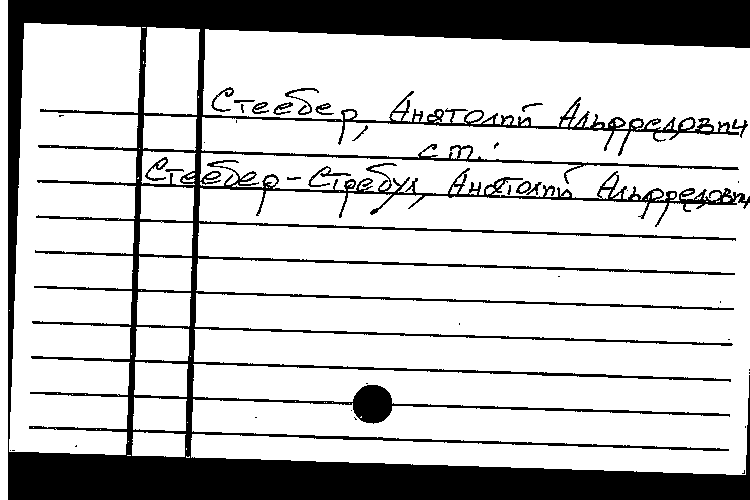 Стеебер, Анатолий Альфредович
ст.:
Стеебер-Стребул, Анатолий Альфредович